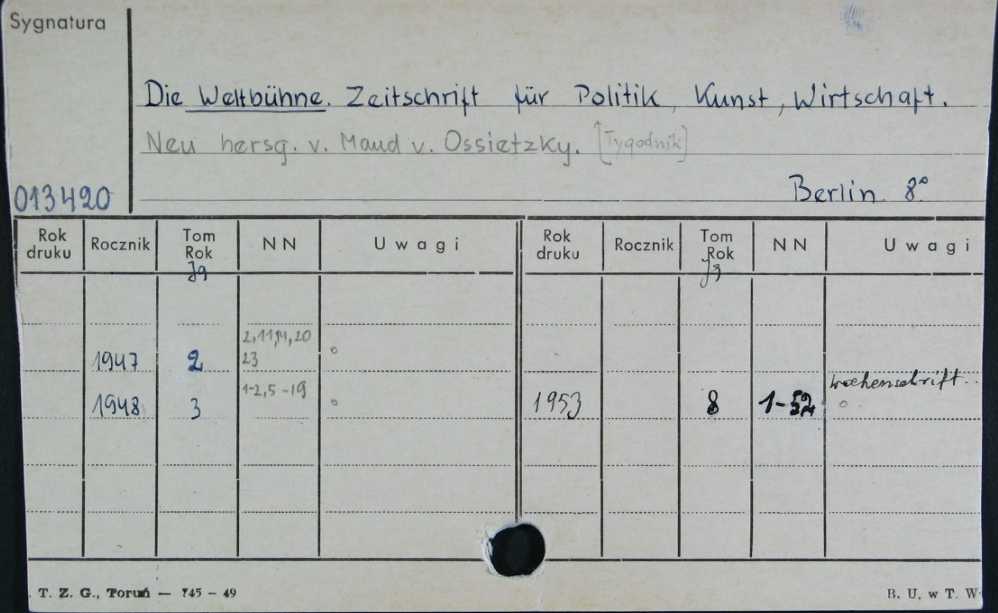 Sygnatura
Die Weltbühne. Zeitschrift für Politik, Kunst, Wirtschaft.
Neu hersg. v. Maud v. Ossietzky. [Tygodnik]
013420
Berlin 8°
Rok druku Rocznik Tom Rok Jg NN Uwagi Rok druku Rocznik Tom Rok Jg NN Uwagi
2, 11, 14, 20
1947 2 23 °
1-2, 5-19 Wochenschrift
1948 3 ° 1953 8 1-52 °
T. Z. G., Toruń — 745 - 49 B. U. w T. W